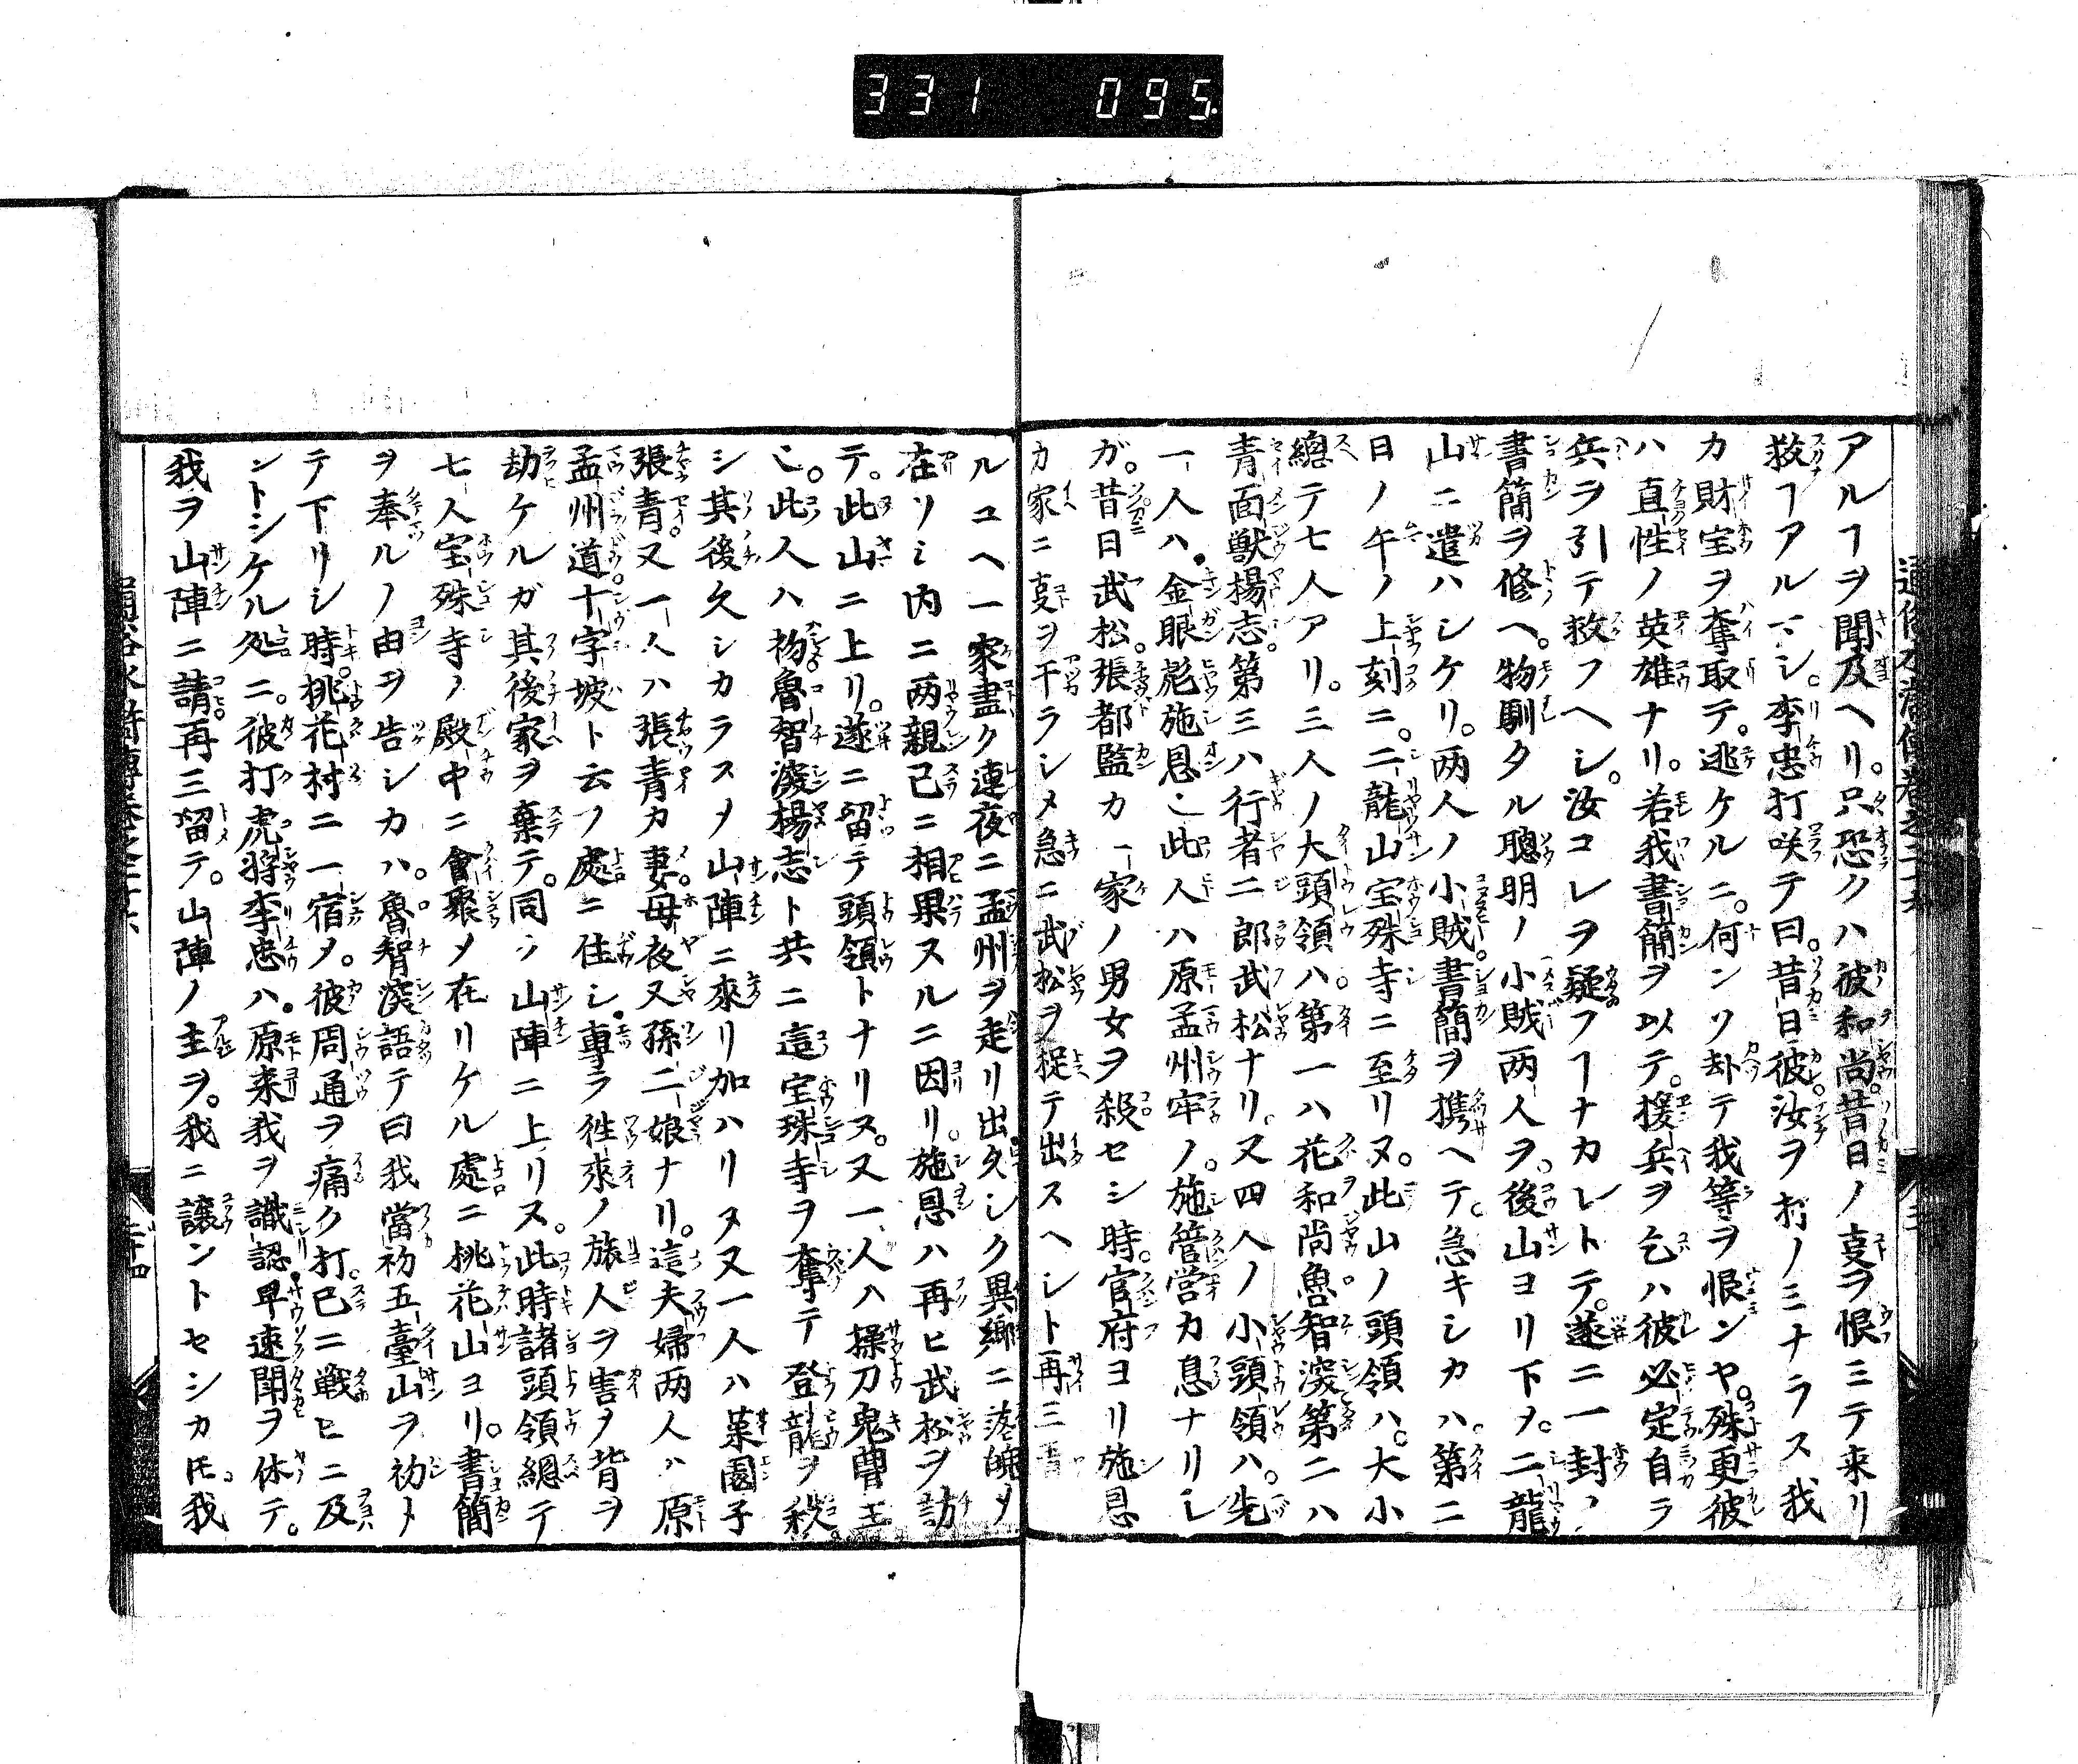 331 095
アルヿヲ聞及ヘリ。只恐クハ彼和尚。昔日ノ㕝ヲ恨ミテ来リ
救ヿアルマシ。李忠打咲テ曰。昔日彼。汝ヲ打ノミナラス我
カ財宝ヲ奪取テ。逃ケルニ。何ンソ却テ我等ヲ恨ンヤ。殊更彼
ハ直性ノ英雄ナリ。若我書簡ヲ以テ。援兵ヲ乞ハ彼必定自ラ
兵ヲ引テ救フヘシ。汝コレヲ疑フヿナカレトテ。遂ニ一封ノ
書簡ヲ修ヘ。物馴タル聰明ノ小賊両人ヲ。後山ヨリ下ヲ。二龍
山ニ遣ハシケリ。两人ノ小賊。書簡ヲ携ヘテ。急キシカハ。第二
日ノ午ノ上刻ニ。二龍山宝殊寺ニ至リヌ。此山ノ頭領ハ。大小
總テ七人アリ。三人ノ大頭領ハ。第一ハ花和尚魯智深第二ハ
青面獣楊志。第三ハ行者二郎武松ナリ。又四人ノ小頭領ハ。先
一人ハ。金眼彪施恩ニ此人ハ原孟州牢ノ。施管営カ息ナリシ
ガ。昔日武松。張都監カ一家ノ男女ヲ殺セシ時。官府ヨリ施恩
カ家ニ㕝ヲ干ラシメ急ニ武松ヲ捉テ出スヘシト再三責
ルユヘ一家盡ク連夜ニ孟州ヲ走リ出。久シク異鄉ニ落魄メ
在ソシ内ニ两親已ニ相果スルニ因リ。施恩ハ再ヒ武松ヲ訪
テ。此山ニ上リ。遂ニ留テ頭領トナリヌ。又一人ハ操刀鬼曹正
ニ。此人ハ初。魯智深楊志ト共ニ這宝珠寺ヲ奪テ登龍ヲ殺
シ其後久シカラスメ山陣ニ來リ加ハリヌ又一人ハ菜園子
張青。又一人ハ張青カ妻。母夜叉孫二娘ナリ。這夫婦两人ハ原
孟州道。十字坡ト云フ處ニ住シ。專ラ徃來ノ旅人ヲ害メ背ヲ
劫ケルガ其後家ヲ棄テ。同ク山陣ニ上リヌ。此時諸頭領總テ
七人宝殊寺ノ殿中ニ會聚メ在リケル處ニ桃花山ヨリ。書簡
ヲ奉ルノ由ヲ告シカハ。魯智深語テ曰我當初五臺山ヲ初メ
テ下リシ時。桃花村ニ一宿メ。彼周通ヲ痛ク打。已ニ戦ヒニ及
ントシケル処ニ。彼打虎將李忠ハ。原来我ヲ識認。早速鬪ヲ休テ。
我ヲ山陣ニ請。再三留テ。山陣ノ主ヲ。我ニ讓ントセシカ𪜈。我
二十四